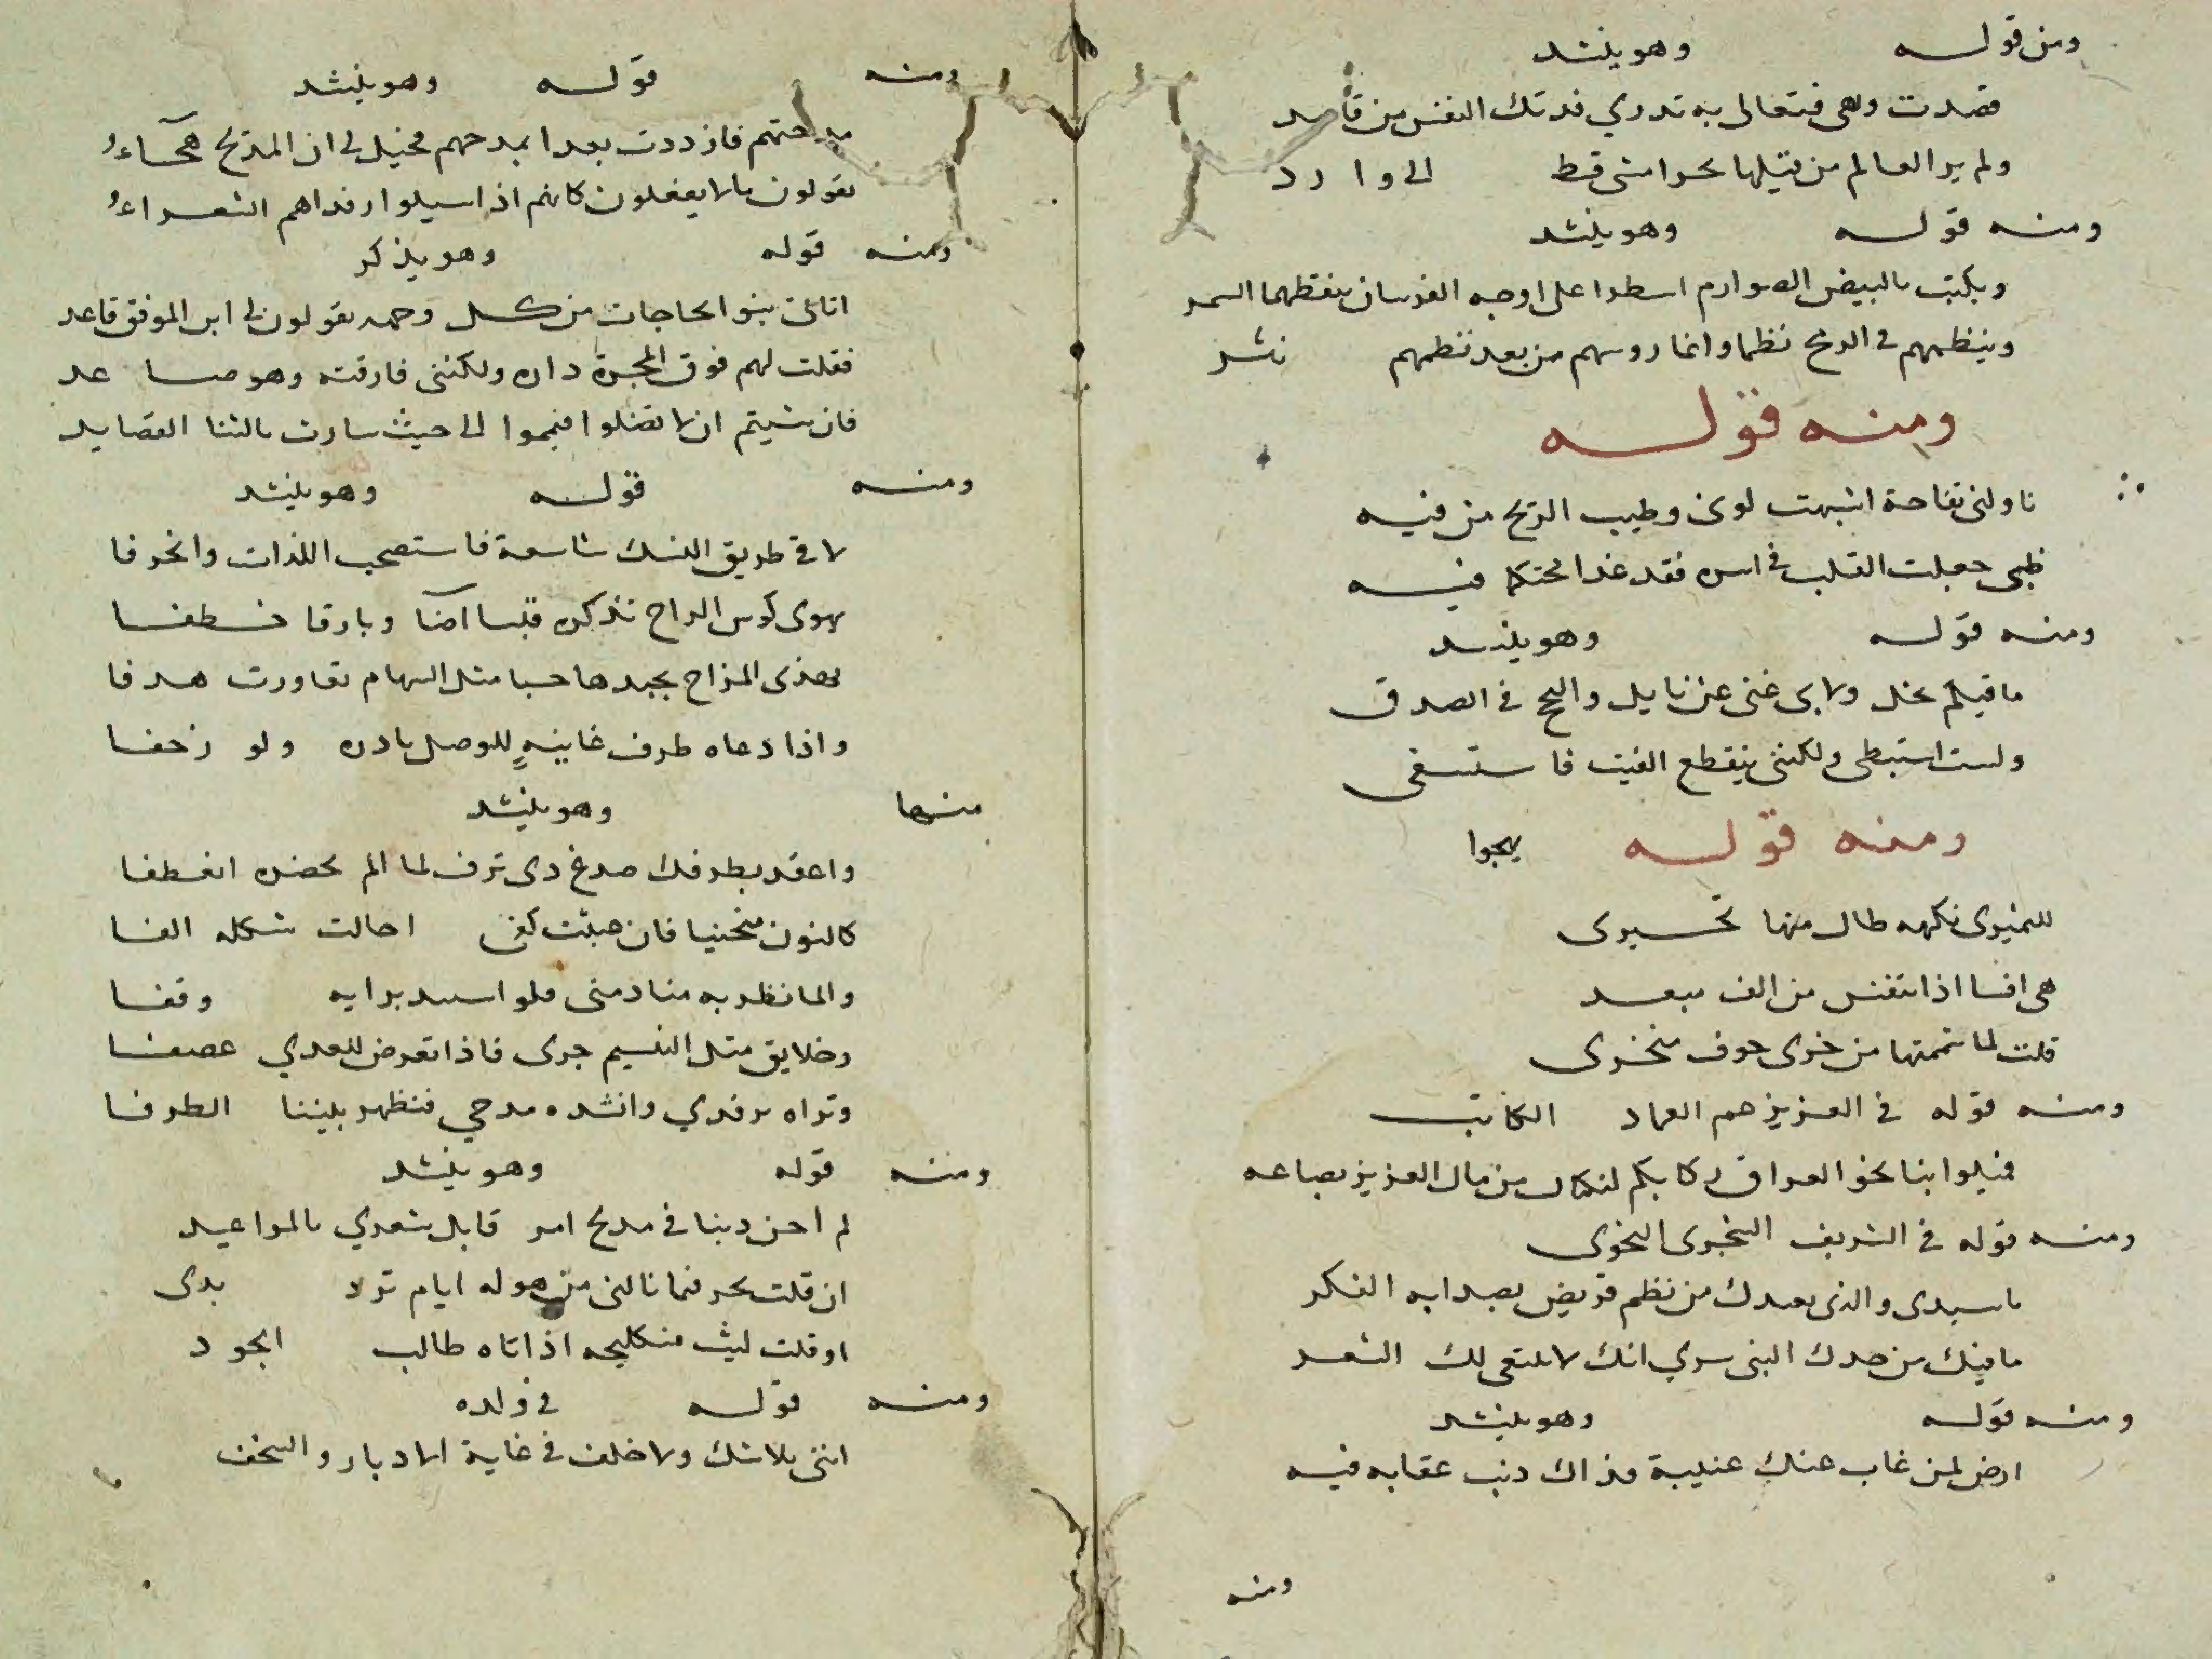 ومن قوله وهو ينشد
قصدت ربعي فتعالى به قدري فدتك النفس من قاصد
ولم ير العالم من قبلها بحرا مشى قط الى وارد
ومنه قوله وهو ينشد
ويكتب بالبيض الصوارم اسطرا على اوجه الفرسان ينقطها السمر
وينظمهم في الرمح نظما وانما روسهم من بعد نظمهم نثر
ومنه قوله
ناولني تفاحة اشبهت لوني وطيب الريح من فيه
ظبي جعلت القلب في اسره فقد غدا محتكما فيه
ومنه قوله وهو ينشد
ما فيكم بخل ولا بي غنى عن نايل والنجح في الصدق
ولست استبطي ولكنني ينقطع الغيث فاستسقي
ومنه قوله يهجوا
نكهه طال منها تحسيرى
هي افسا اذا تنفس من الف مبعد
قلت لما شممتها من خرى جوف منخرى
ومنه قوله في العزيز عم العماد الكاتب
فميلوا بنا نحو العراق ركابكم لنكتال من مال العزيز بصاعه
ومنه قوله في الشريف الشجرى النحوى
يا سيدى والذى يعيدك من نظم قريض يصدا به الفكر
ما فيك من جدك النبي سوي انك لا ينبغي لك الشعر
ومنه قوله وهو ينشد
ارض لمن غاب عنك غيبة فذاك ذنب عقابه فيه
ومنه
ومنه قوله وهو ينشد
مدحتهم فازددت بعدا بمدحهم فخيل لي ان المديح هجاء
يقولون ما لا يفعلون كانهم اذا سيلوا رفدا هم الشعراء
ومنه قوله وهو يذكر
اتاني بنو الحاجات من كل وجهه يقولون لي اين الموفق قاعد
فقلت لهم فوق المجرة داره ولكنني فارقته وهو صاعد
فان شيتم ان لا تضلوا فيمموا الى حيث سارت بالثنا القصايد
ومنه قوله وهو ينشد
لاقى طريق النسك شاسعة فاستصحب اللذات وانحرفا
يهوى كوس الراح تذكره قبسا اضا وبارقا خطفا
يهذي المزاح بجيدها حببا مثل السهام تعاورت هدفا
واذا دعاه طرف غانية للوصل بادره ولو زحفا
منها وهو ينشد
واعقد بطرفك صدغ ذى ترف لما الم بخصره انعطفا
كالنون منحنيا فان عبثت كف احالت شكله الفا
رايه وقفا
وخلايق مثل النسيم جرى فاذا تعرض للعدي عصفا
وتراه يرفدي وانشده مدحي فنظهر بيننا الطرفا
ومنه قوله وهو ينشد
لم احن ذنبا في مديح امر قابل شعري بالمواعيد
ان قلت بحر فما نالني من هوله ايام ترد بدى
او قلت ليث اذا اتاه طالب الجود
ومنه قوله في ولده
انتى بلا شك ولا خلف في غاية الادبار والسخف